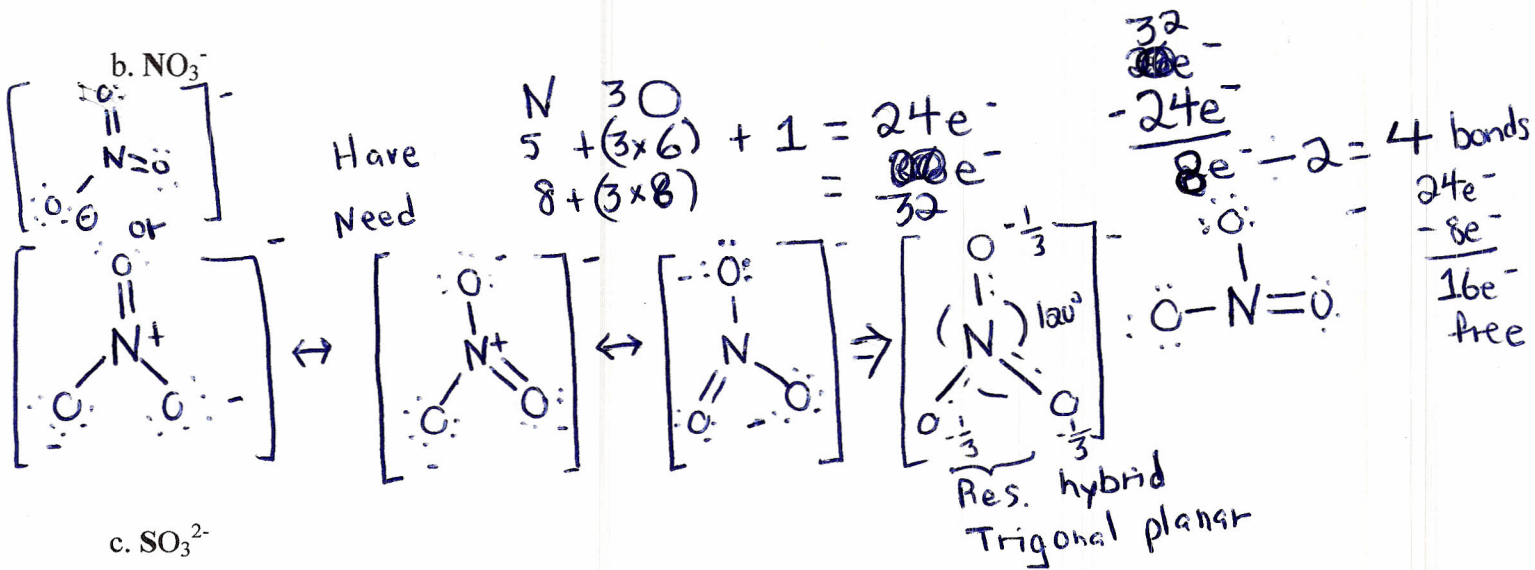 b. NO₃⁻
N 3O
Have 5 + (3×6) + 1 = 24e⁻
Need 8 + (3×8) = e⁻
32
32
e⁻
-24e⁻
8e⁻ ÷ 2 = 4 bonds
24e⁻
- 8e⁻
16e⁻
free
O
N=O
O ⊖
or
O
N+
O O -
↔
O -
N+
O O
-
↔
- O
N
O O -
⇒
O -1/3
( N ) 120°
O -1/3 O -1/3
-
O
O-N=O
Res. hybrid
Trigonal planar
c. SO₃²⁻